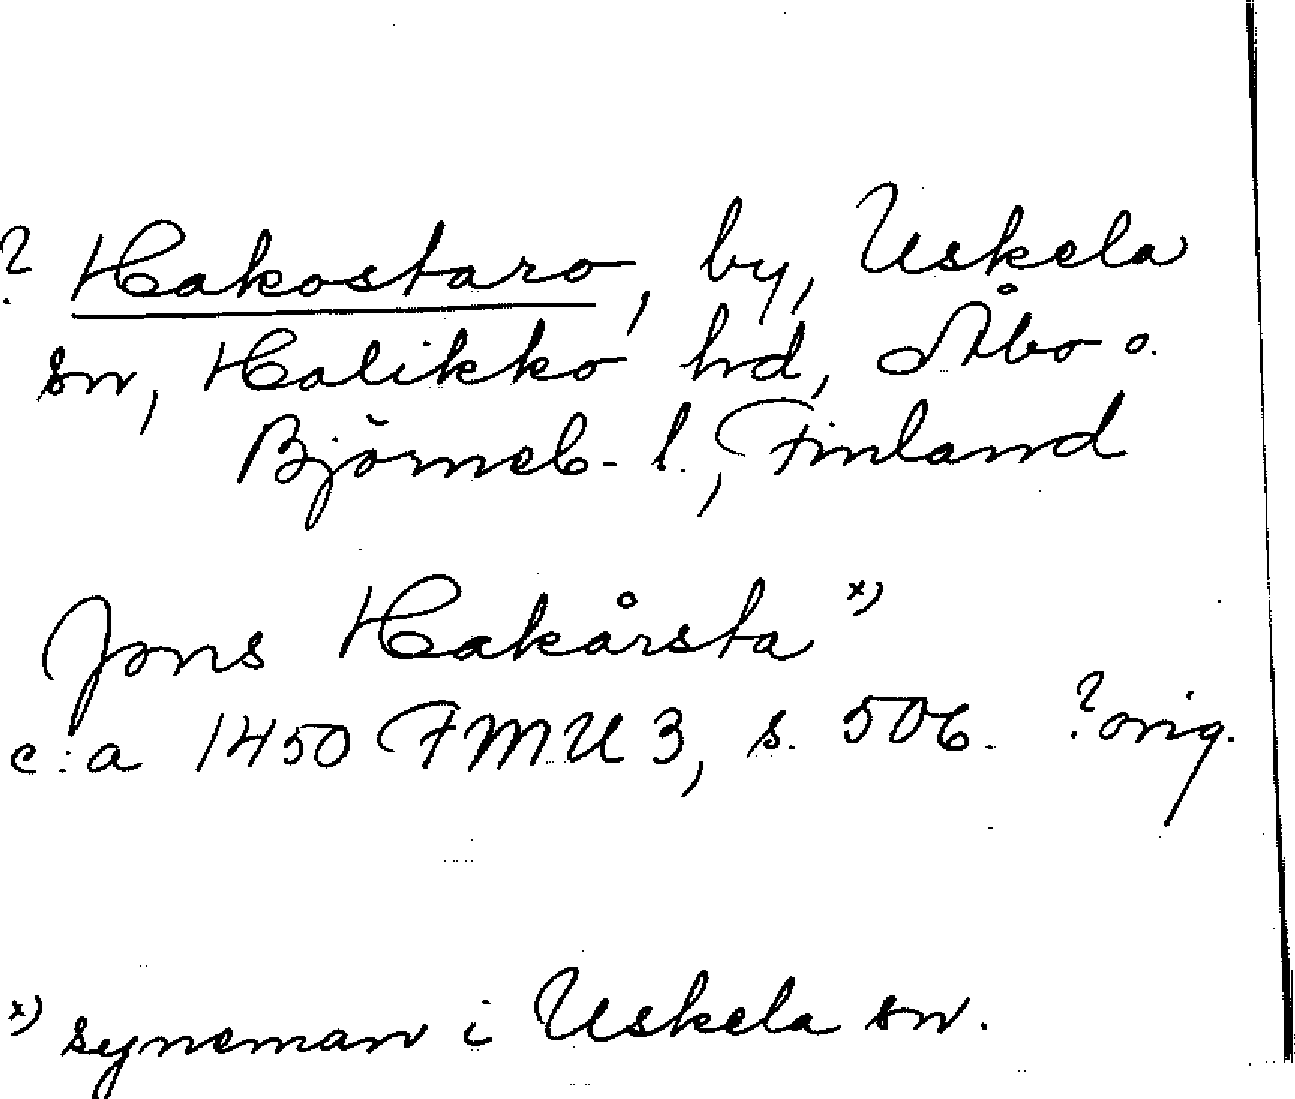 ? Hakostaro, by, Uskela
sn, Halikko hd, Åbo o.
Björneb. l., Finland
Jons Hakårsta x)
c:a 1450 FMU 3, s. 506. ? orig.
x) syneman i Uskela sn.